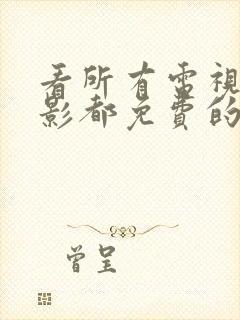 看所有雷視
影都免費的
曾呈